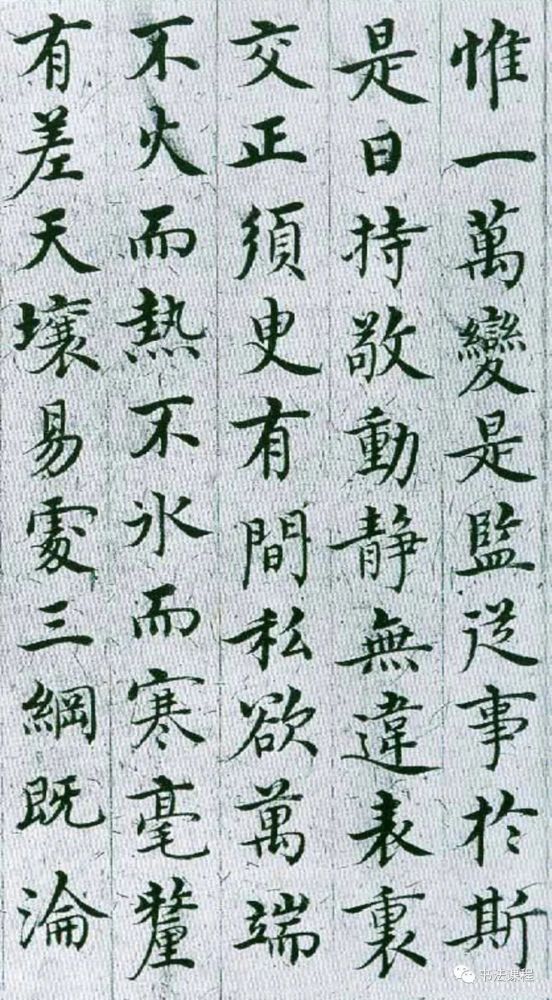 惟一萬變是監從事於斯
是曰持敬動静無違表裏
交正須臾有間私欲萬端
不火而熱不氷而寒毫釐
有差天壤易處三綱既淪
书法课程